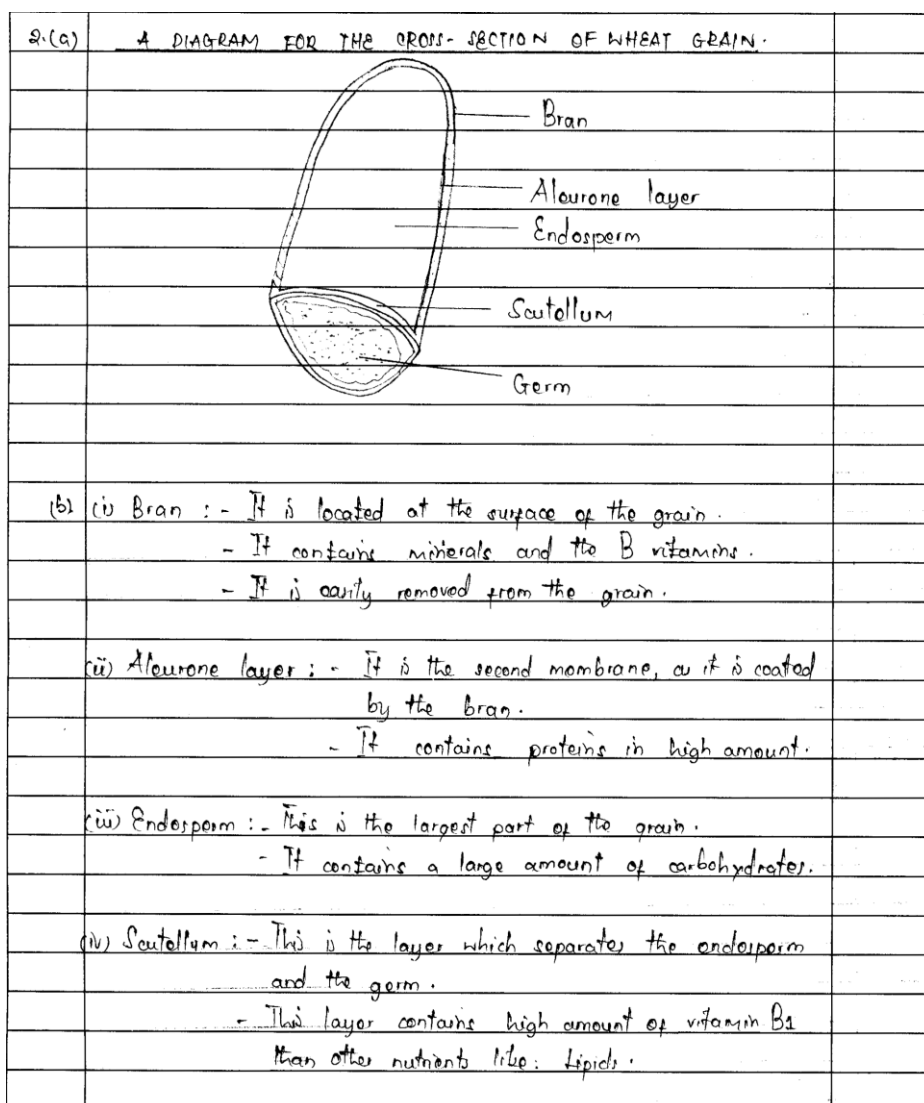 2.(a) A DIAGRAM FOR THE CROSS-SECTION OF WHEAT GRAIN.
Bran
Aleurone layer
Endosperm
Scutellum
Germ
(b) (i) Bran :- It is located at the surface of the grain.
- It contains minerals and the B vitamins.
- It is easily removed from the grain.
(ii) Aleurone layer :- It is the second membrane, as it is coated
by the bran.
- It contains proteins in high amount.
(iii) Endosperm :- This is the largest part of the grain.
- It contains a large amount of carbohydrates.
(iv) Scutellum :- This is the layer which separates the endosperm
and the germ.
- This layer contains high amount of vitamin B1
than other nutrients like: Lipids.